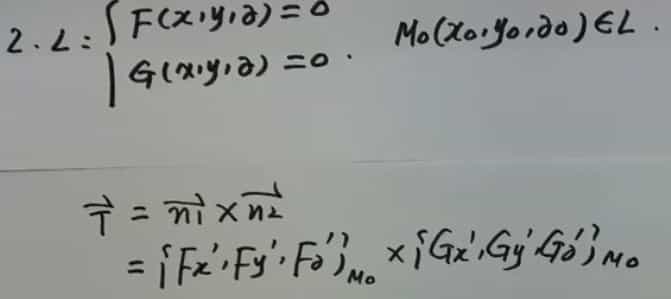 2. L: { F(x,y,z)=0
G(x,y,z)=0. M₀(x₀,y₀,z₀)∈L.
T⃗ = n₁⃗ × n₂⃗
= {Fx', Fy', Fz'}M₀ × {Gx', Gy', Gz'}M₀